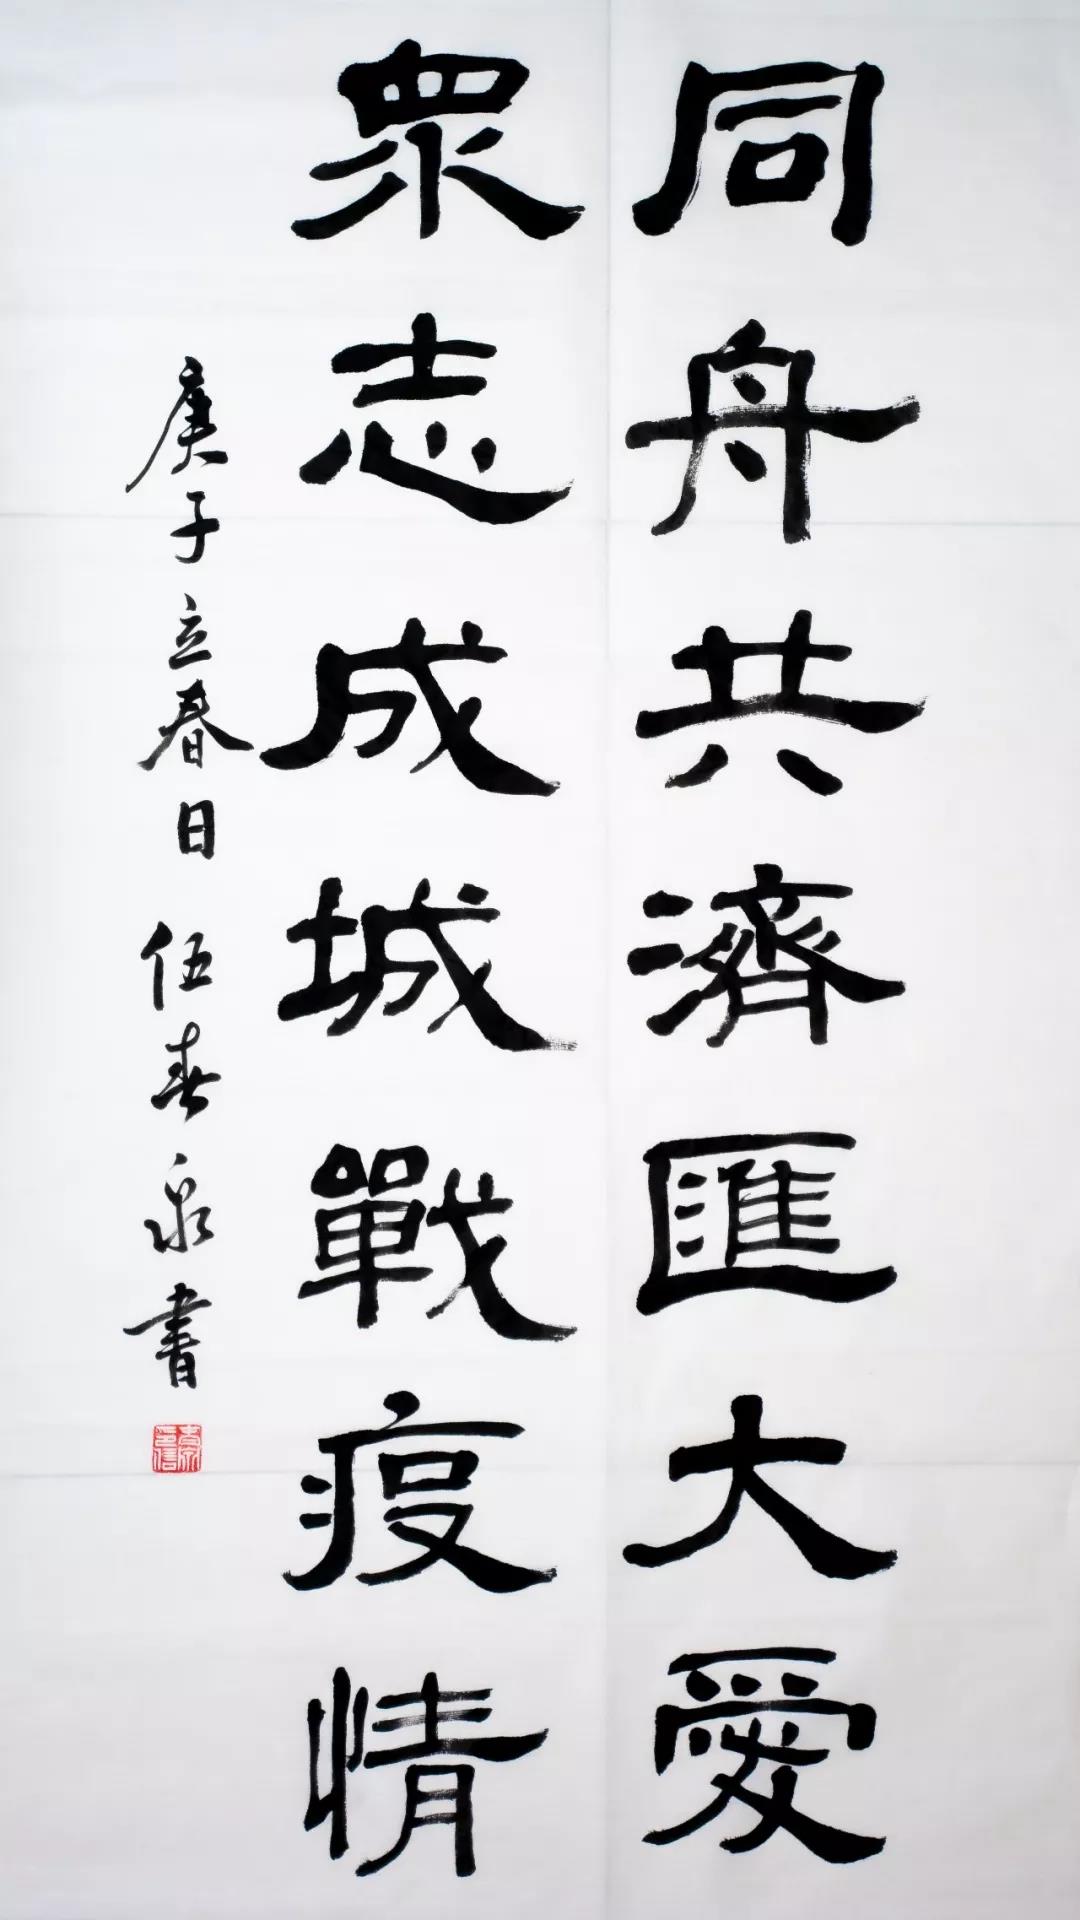 同舟共濟匯大愛
眾志成城戰疫情
庚子立春日 伍春泉書